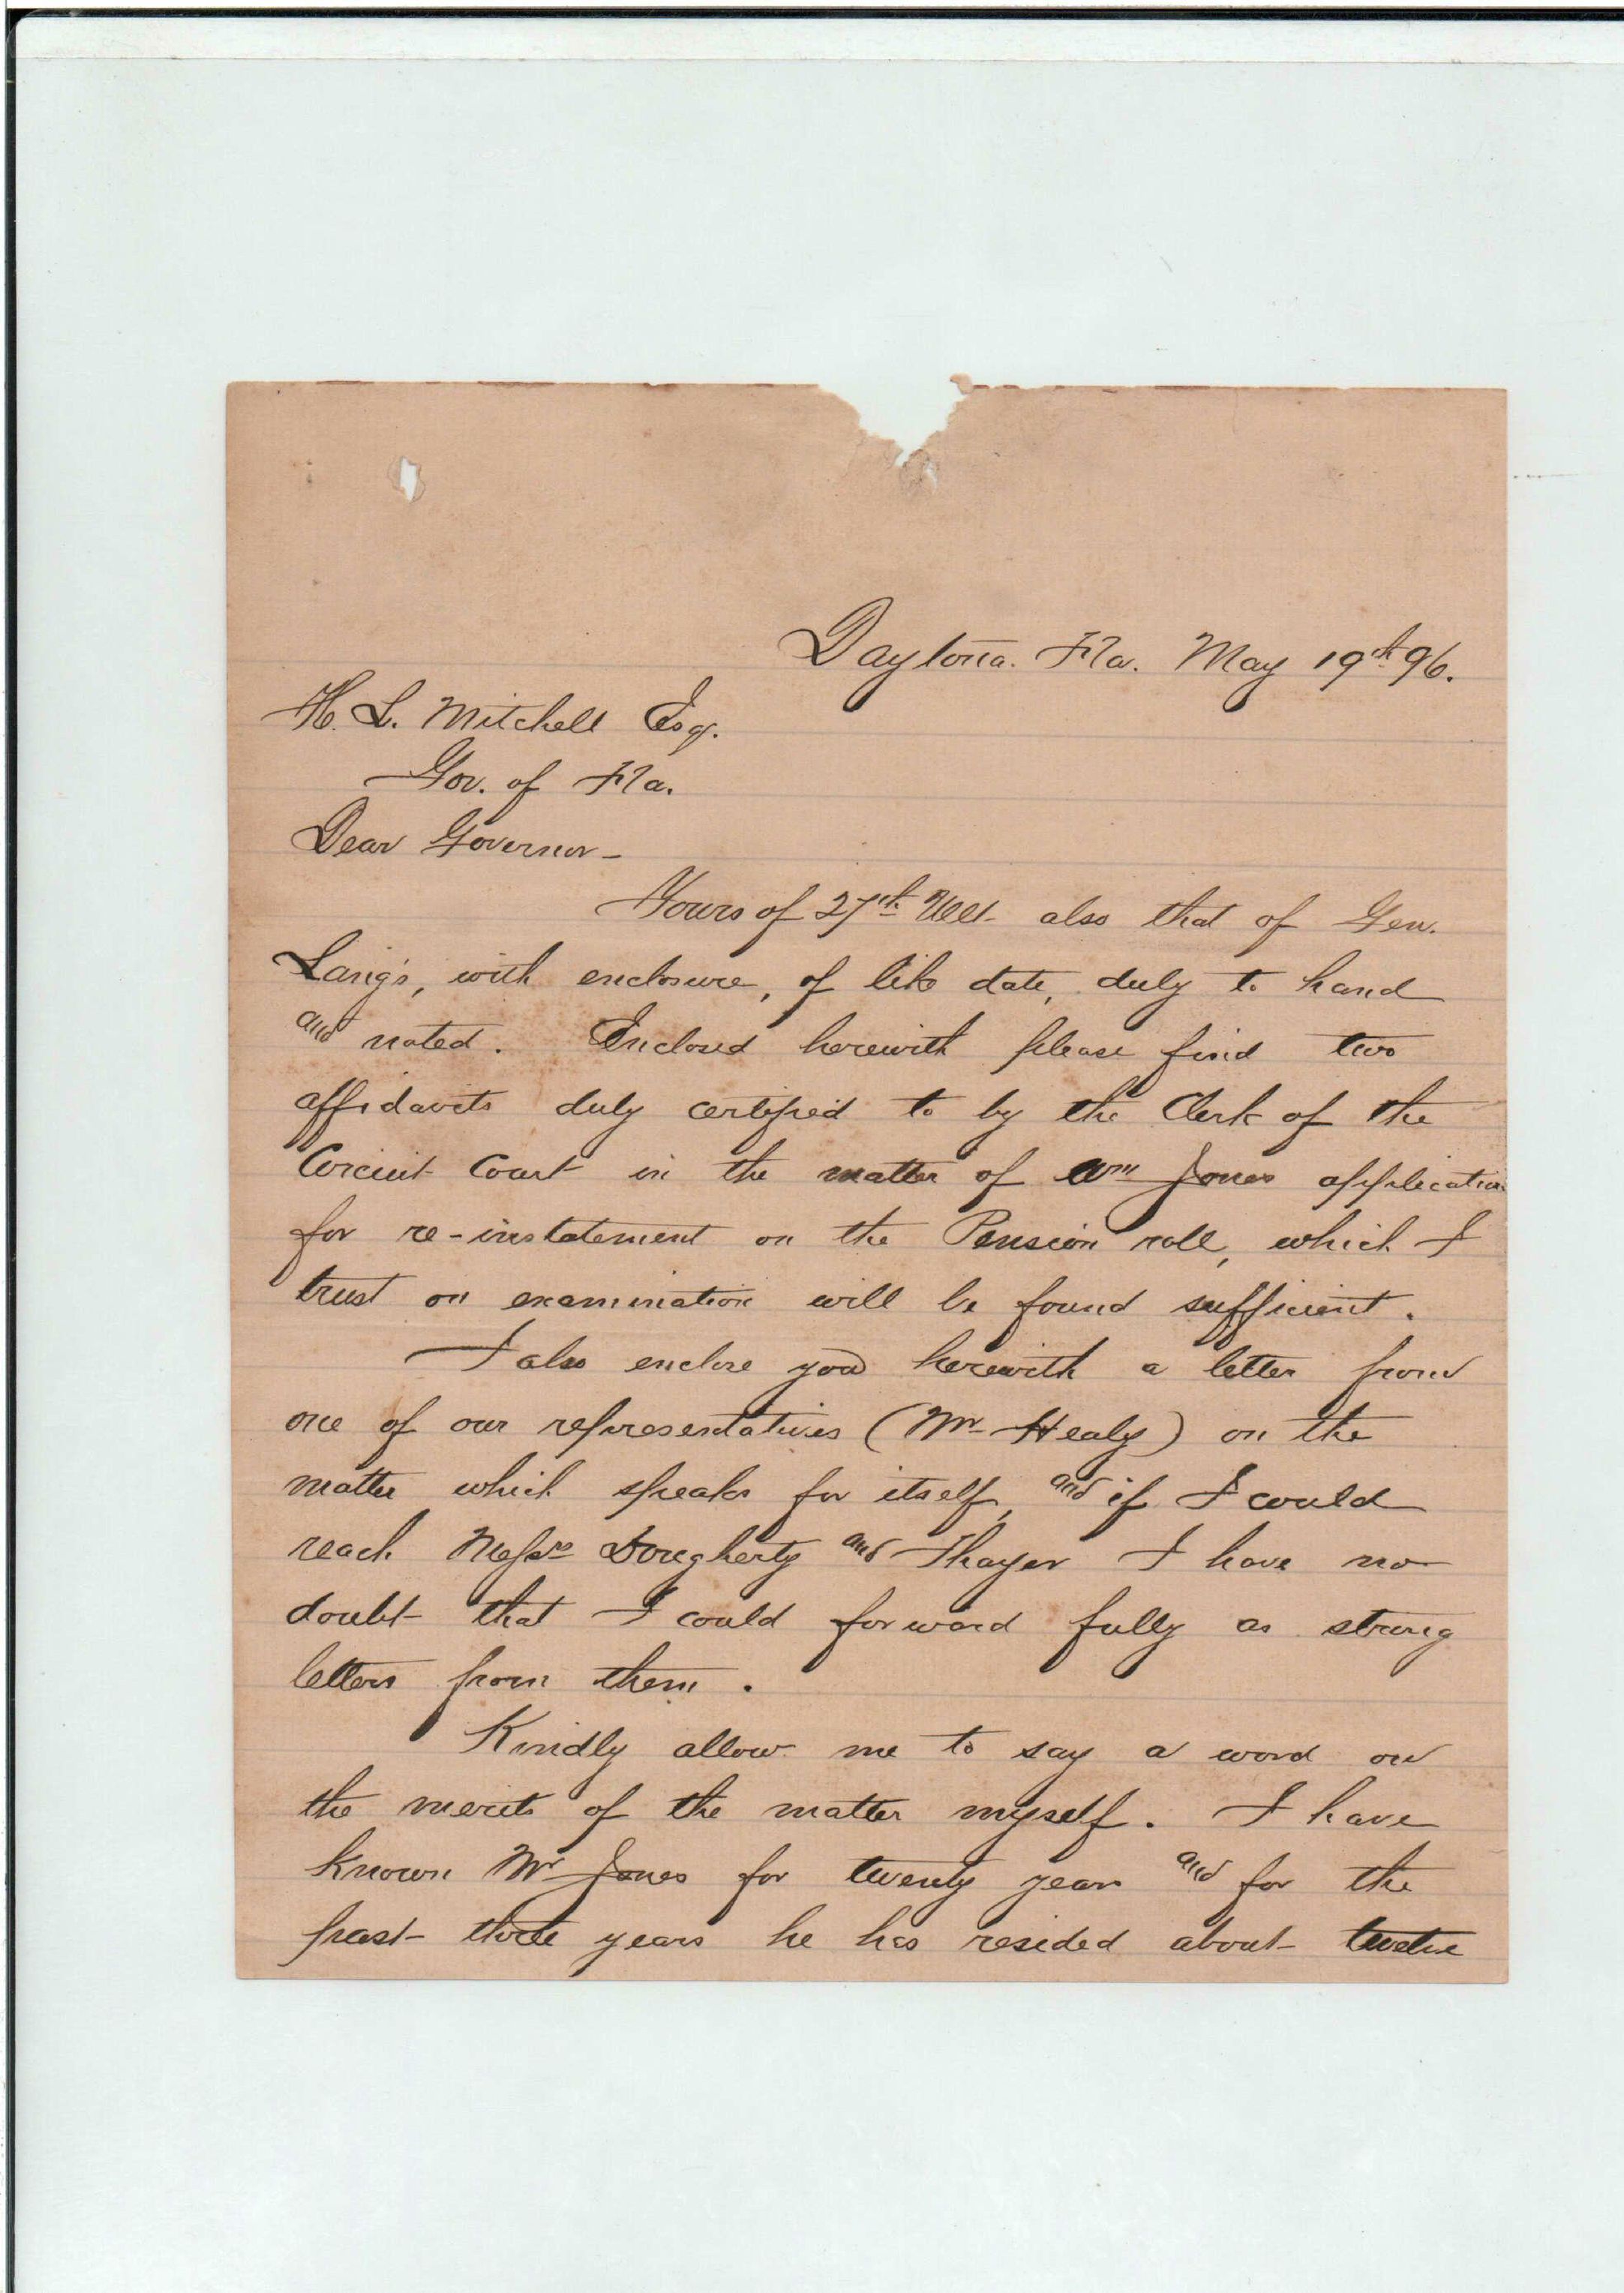 Daytona. Fla. May 19th 96.
H. L. Mitchell Esq.
Gov. of Fla.
Dear Governor-
Yours of 27th Ult. also that of Gen.
Lang's, with enclosure, of like date, duly to hand
and noted. Enclosed herewith please find two
affidavits duly certified to by the Clerk of the
Circuit Court in the matter of Wm Jones application
for re-instatement on the Pension roll, which I
trust on examination will be found sufficient.
I also enclose you herewith a letter from
one of our representatives (Mr Healy) on the
matter which speaks for itself, and if I could
reach Messrs Dougherty and Thayer I have no
doubt that I could forward fully as strong
letters from them.
Kindly allow me to say a word on
the merits of the matter myself. I have
known Mr Jones for twenty years and for the
past three years he has resided about twelve